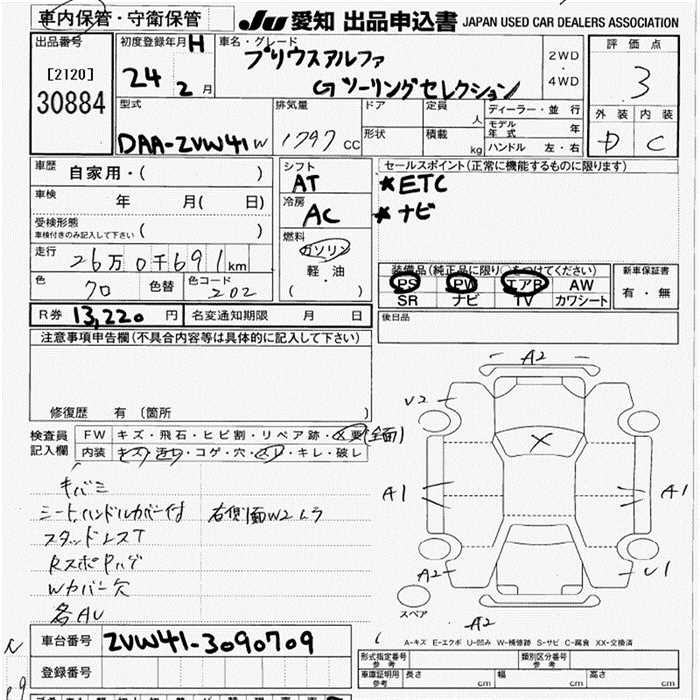 車内保管・守衛保管
JU 愛知 出品申込書 JAPAN USED CAR DEALERS ASSOCIATION
出品番号
[2120]
30884
初度登録年月 H
24 2 月
車名・グレード
プリウスアルファ
Gツーリングセレクション
2WD
・
4WD
評価点
3
外装 内装
D C
型式
DAA-ZVW41W
排気量
1797 CC
ドア
形状
定員
人
積載
kg
ディーラー・並行
モデル年式 年
ハンドル 左・右
車歴
自家用・( )
車検
年 月( 日)
受検形態
車検付きのみ記入して下さい ( )
走行
26万0千691km
色
70
色替
色コード
202
シフト
AT
冷房
AC
燃料
ガソリン
・
軽・油
・
( )
セールスポイント(正常に機能するものに限ります)
★ETC
★ナビ
装備品(純正品に限り○をつけてください)
PS PW エアB AW
SR ナビ TV カワシート
新車保証書
有・無
後日品
R券 13,220 円
名変通知期限 月 日
注意事項申告欄(不具合内容等は具体的に記入して下さい)
修復歴 有(箇所 )
検査員
記入欄
FW キズ・飛石・ヒビ割・リペア跡・X要(全面)
内装 キズ・汚れ・コゲ・穴・スレ・キレ・破レ
キバミ
シート,ハンドルカバー付 右側面W2ムラ
スタッドレスT
RスポPハゲ
Wカバー欠
各AU
A2
V2
X
A1
A1
A2
U1
A2
スペア
A-キズ E-エクボ U-凹み W-補修跡 S-サビ C-腐食 XX-交換済
車台番号 ZVW41-3090709
登録番号
形式指定番号
参考
類別区分番号
参考
車庫証明用
参考
長さ cm
幅 cm
高さ cm